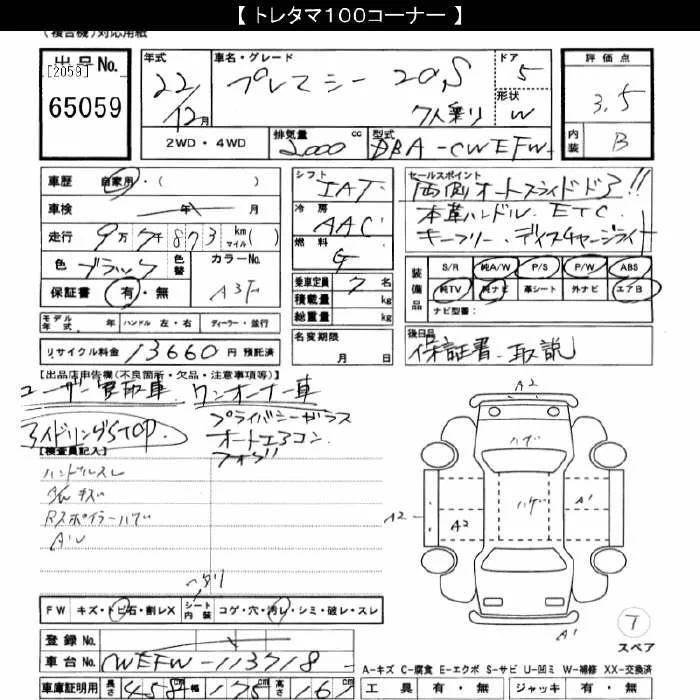 【 トレタマ100コーナー 】
(複合機)対応用紙
出品No. 年式 車名・グレード ドア 評価点
[2059] 22/12月 プレマシー 20S 5 3.5
65059 7人乗り 形状 W
2WD・4WD 排気量 2,000 cc 型式 DBA-CWEFW- 内装 B
車歴 自家用・( ) シフト IAT セールスポイント 両側オートスライドドア!!
車検 年 月 冷房 AAC 本革ハンドル. ETC.
走行 9万7千873 km(マイル) 燃料 G キーフリー. ディスチャージライト
色 ブラック 色替 カラーNo. A3F
乗車定員 7名 装備品 S/R 純A/W P/S P/W ABS
保証書 有・無 積載量 kg 純TV 純ナビ 革シート 外ナビ エアB
総重量 kg ナビ型番:
モデル年式 年 ハンドル 左・右 ディーラー・並行 名変期限 月 日 後日品
リサイクル料金 13660円 預託済 保証書. 取説
【出品店申告欄(不良箇所・欠品・注意事項等)】
ユーザー買取車. ワンオーナー車
アイドリングSTOP プライバシーガラス
オートエアコン
フォグ
【検査員記入】
ハンドルスレ
キズ
Rスポイラーハゲ
A2
ハゲ
ハゲ
A2 A2 A1
A1
FW キズ・トビ石・割レX シート内装 コゲ・穴・汚レ・シミ・破レ・スレ
スペア
登録No.
車台No. CWEFW-113718-
A-キズ C-腐食 E-エクボ S-サビ U-凹ミ W-補修 XX-交換済
車庫証明用 長さ 458cm 幅 175cm 高さ 167 工具 有・無 ジャッキ 有・無